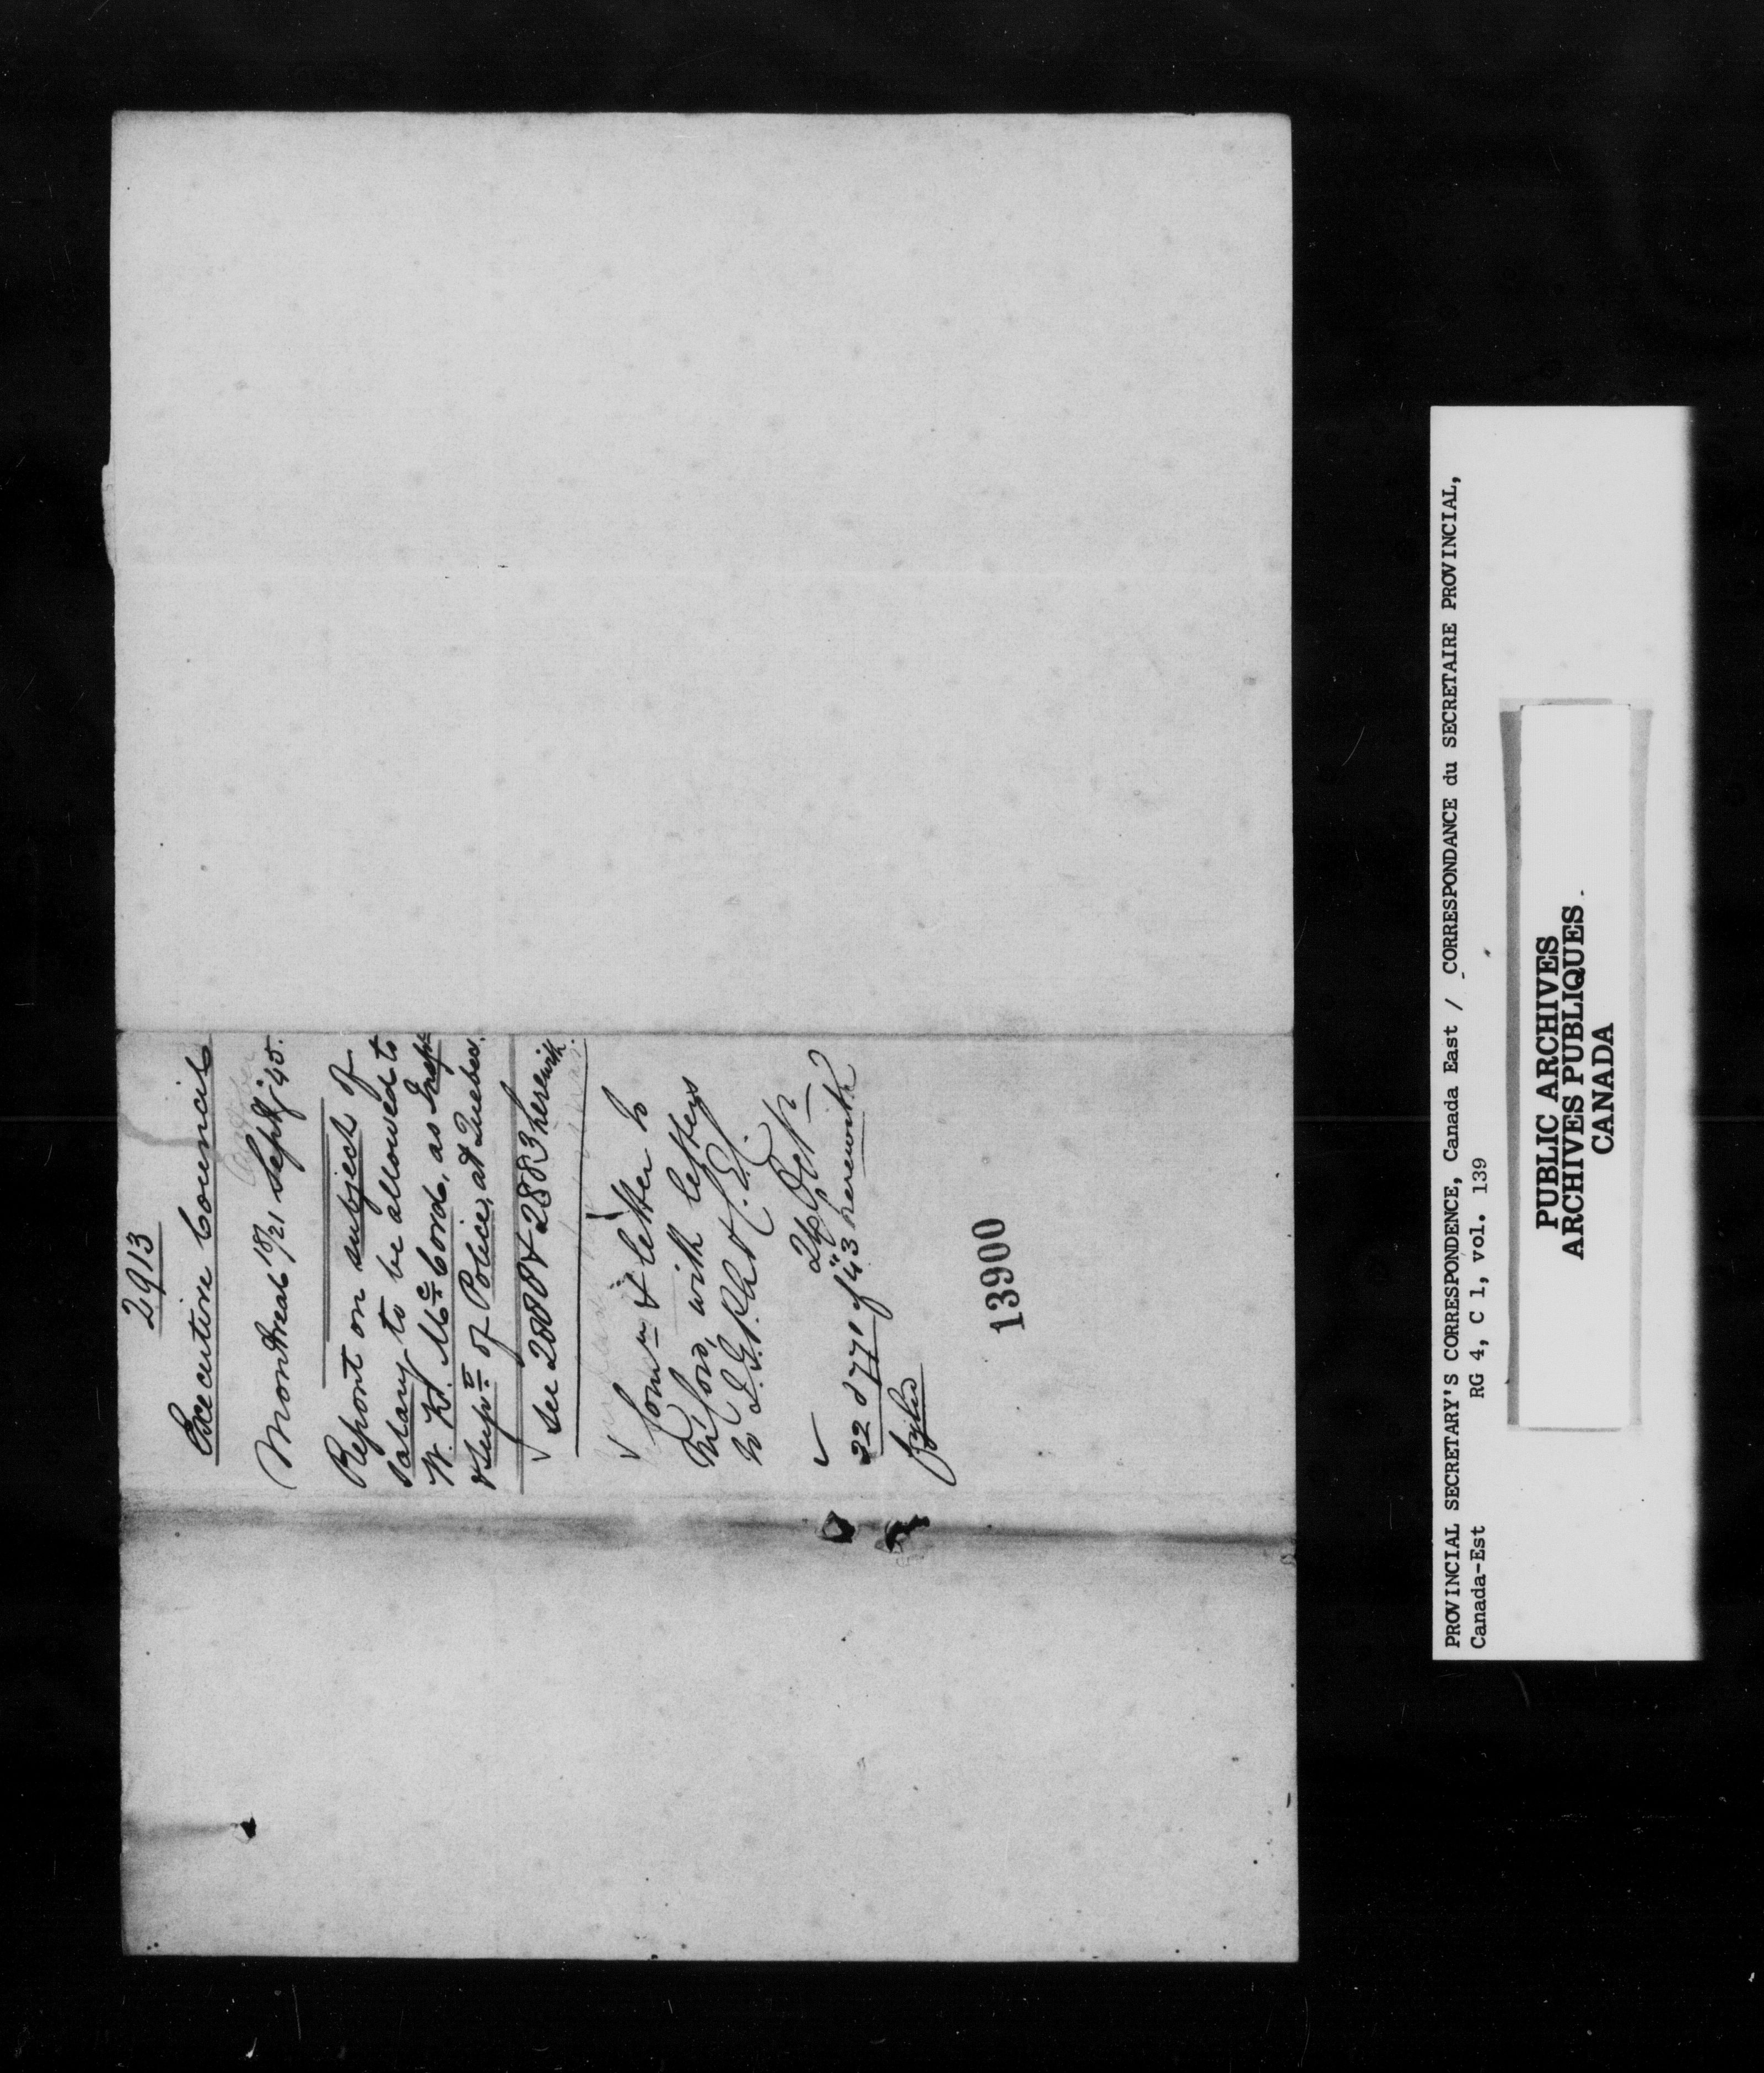 2913
Executive Council
Montreal 18/21 Sept '45.
Report on subject of
salary to be allowed to
W. K. McCord, as Inspr
& Supt of Police, at Quebec.
see 2888 & 2883 herewith.
Comn & letter to
Mr McCord, with letters
to
24 Sept
22 & 771 of '43 herewith
13900
PROVINCIAL SECRETARY'S CORRESPONDENCE, Canada East / CORRESPONDANCE du SECRETAIRE PROVINCIAL,
Canada-Est RG 4, C 1, vol. 139
PUBLIC ARCHIVES
ARCHIVES PUBLIQUES
CANADA